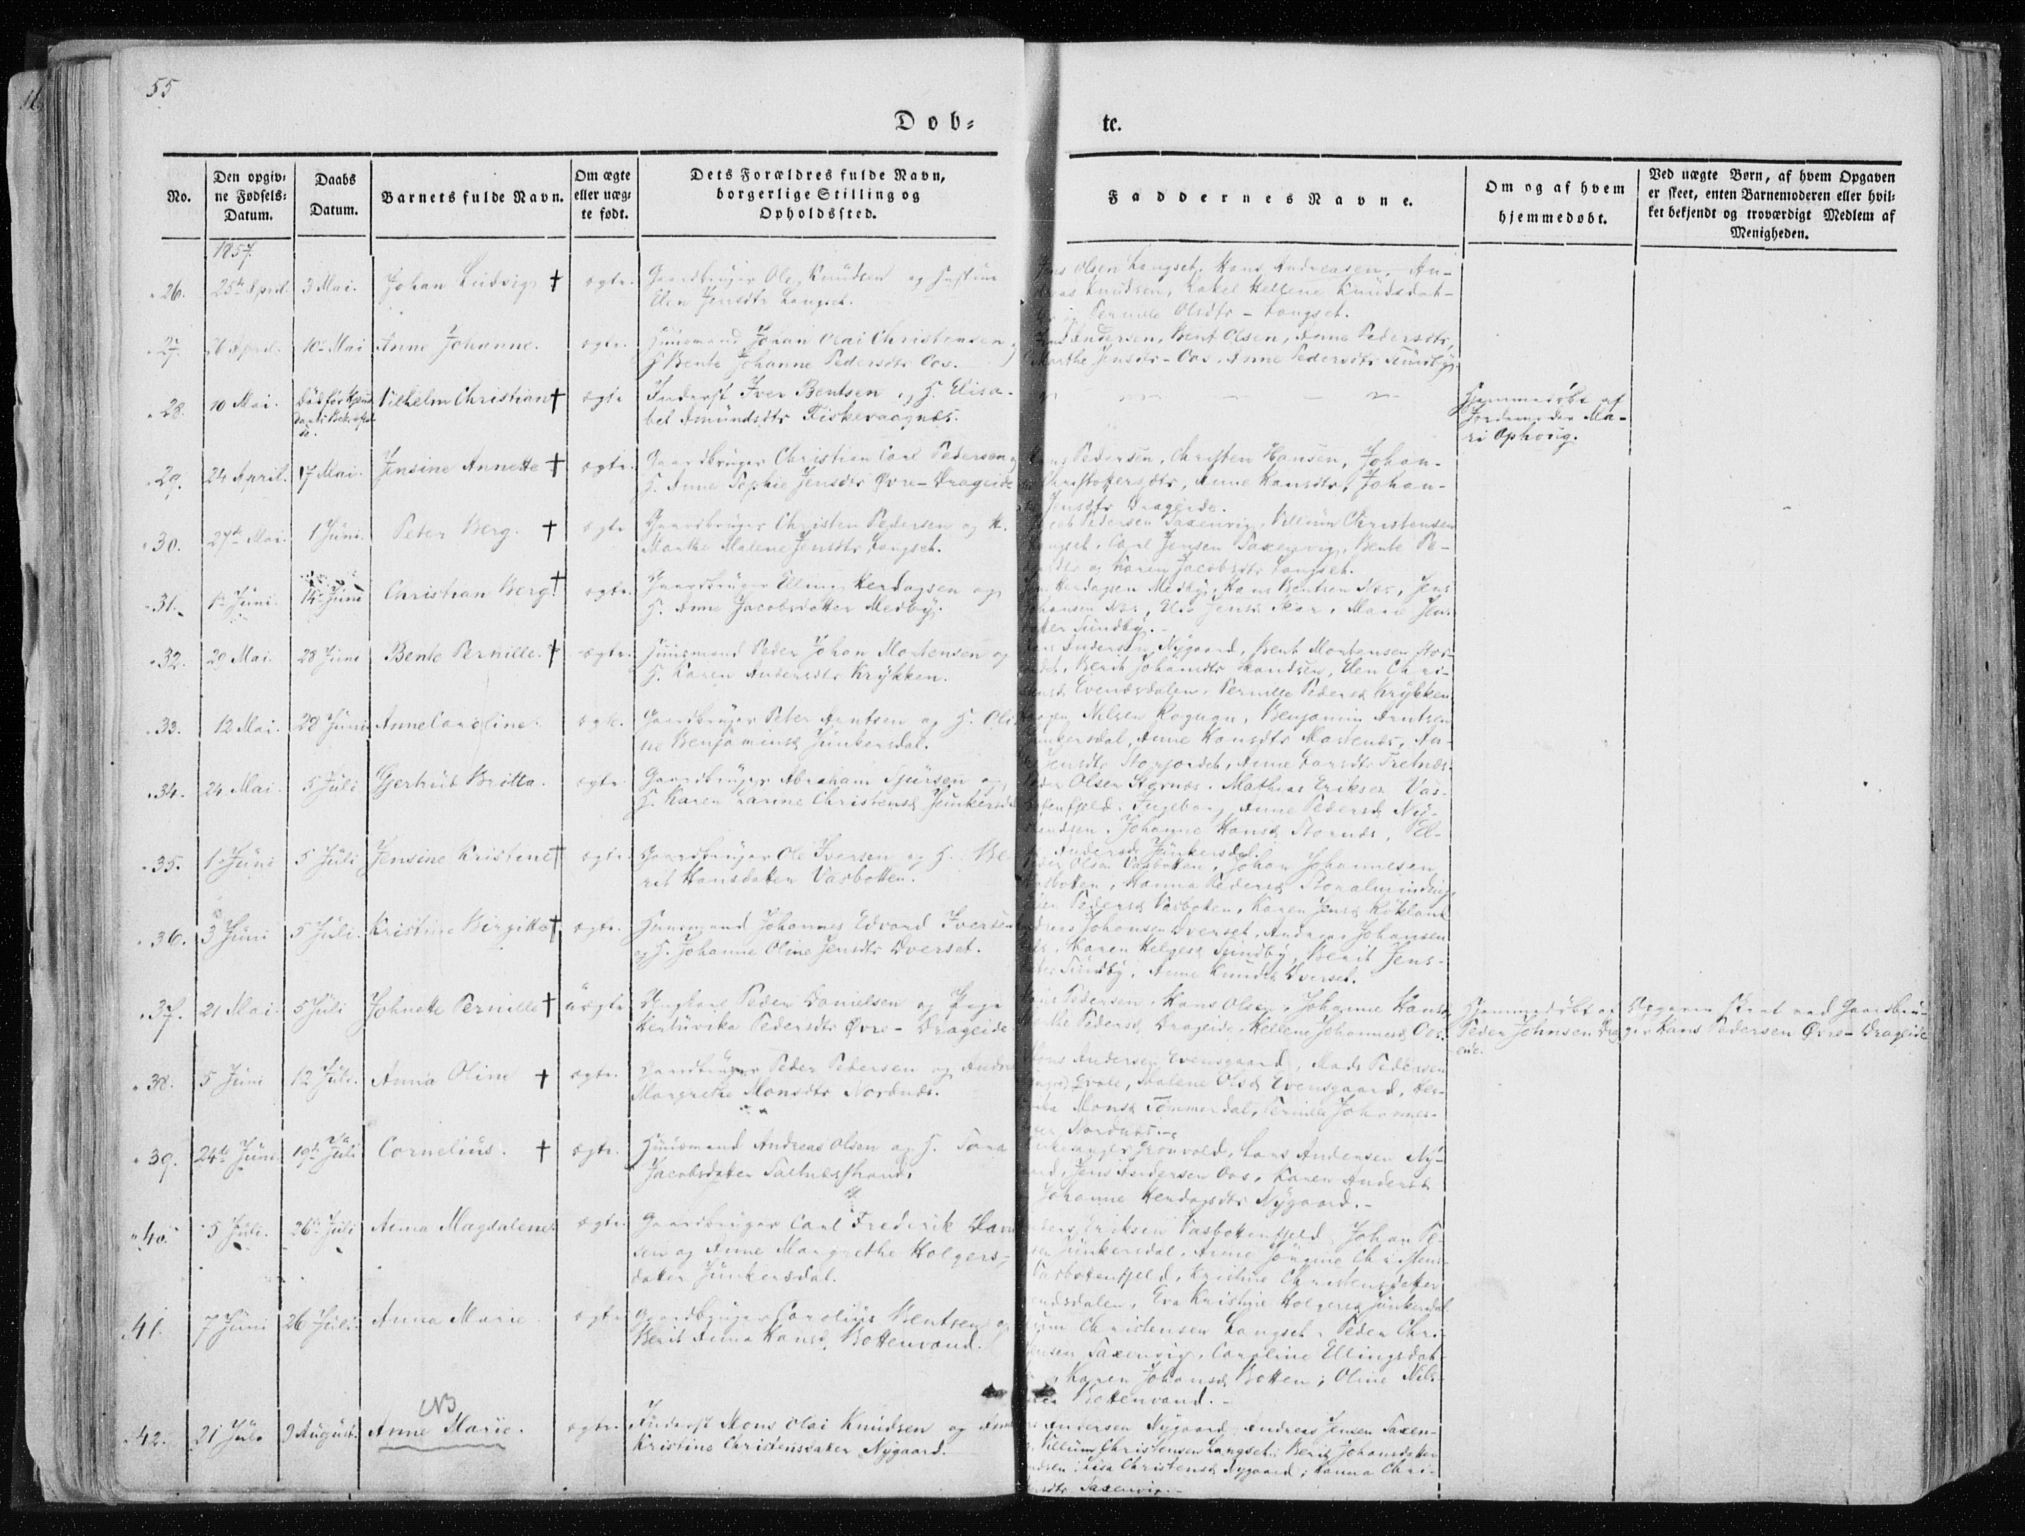 55
Dob= te.
No.
Den opgiv=
ne Fødsels=
Datum.
Daabs
Datum.
Barnets fulde Navn.
Om ægte
eller uæg=
te født.
Dets Forældres fulde Navn,
borgerlige Stilling og
Opholdssted.
Faddernes Navne.
Om og af hvem
hjemmedøbt.
Ved uægte Børn, af hvem Opgaven
er skeet, enten Barnemoderen eller hvil=
ket bekjendt og troværdigt Medlem af
Menigheden.
1857.
26. 25de April. 3 Mai. Johan Ludvig † ægte. Gaardbruger Ole Knudsen og Hustru
Elen Jensdtr Langset.
Olsen Langset, Hans Andreasen, An-
Knudsen, Rakel Hellene Knudsdat-
Pernille Olsdtr - Langset.
27. 26 April. 10de Mai Anne Johanne. ægte. Huusmand Johan Olai Christensen
H. Bente Johanne Pedersdtr Oos.
Andersen, Bent Olsen, Anne Pedersdtr,
Marthe Jensdtr - Oos, Anne Pedersdtr Sundby.
28. 10 Mai. Vilhelm Christian † ægte Inderst Iver Bentsen, H. Elisa-
bet Amundsdtr Fiskevaagnæs.
Hjemmedøbt af
Jordemoder Ma-
ri Ophoug.
29. 24 April. 17 Mai. Jensine Annette † ægte. Gaardbruger Christian Carl Pedersen
H. Anne Sophie Jensdtr Øvre-Drageide
Pedersen, Christen Hansen, Johan-
Christoffersdtr, Anne Hansdtr, Johan-
Jensdtr Drageide.
30. 27de Mai. 1 Juni. Peter Berg. † ægte Gaardbruger Christen Pedersen og H.
Marthe Malene Jensdtr Langset.
Pedersen Saxenvig, Villum Christensen
Langset, Carl Jensen Saxenvig, Bente Pe-
og Karen Jacobsdtr Langset.
31. 1te Juni. 14de Juni Christian Berg. † ægte. Gaardbruger Elling Herdagsen og
H. Anne Jacobsdatter Medby.
Herdagsen Medby, Hans Bentsen Nos, Jens
Johansen Nos, Jensd. Skar, Marie Jens-
Sundby.
32. 20 Mai. 28 Juni Bente Pernille. † ægte. Huusmand Peder Johan Mortensen og
H. Karen Andersdtr Krykken.
Andersen Nygaard, Bent Mortensen
Berit Johansdtr Elen Chri-
Evensdalen, Pernille Pedersd. Krykken
33. 12 Mai. 29 Juni Anne Caroline. ægte. Gaardbruger Peter Arntsen og H. Oli-
ne Benjaminsd. Junkersdal.
Nilsen Rognan, Benjamin Arntsen
Junkersdal, Anne Hansdtr An-
Jensdtr Storjordet, Anne Larsdtr
34. 24 Mai. 5 Juli Gjertrud Britta. ægte. Gaardbruger Abraham Sjursen og
H. Karen Christensd. Junkersdal
Olsen Stornæs, Mathias Eriksen Vas-
botenfjeld, Ingeborg Anne Pedersd.
Johanne Hansd. Stornæs,
Andersd. Junkersdal.
35. 1 Juni 5 Juli Jensine Kristine † ægte. Gaardbruger Ole Iversen og H. Be-
rit Hansdatter Vasbotten.
Olsen Vasbotten, Johan Johannesen
Vasbotten, Hanna Pedersd. Storalmindinge
Pedersd. Vasbotten, Karen Jensd. Røkland
36. 3 Juni 5 Juli. Kristine Birgitte † ægte. Huusmand Johannes Edvard Iversen
og H. Johanne Oline Jensdtr Dverset.
Johansen Dverset, Andreas Johansen
Karen Helgesd. Sundby, Berit Jens-
Sundby, Anne Knudsd. Dverset.
37. 21 Mai. 5 Juli Johnette Pernille † uægte Ungkarl Peder Danielsen og Pige
Hendrikka Pedersdtr Øvre - Drageide
Pedersen, Hans Olsen, Johanne Hansd.
Pedersd. Drageide, Hellene Johannesd. Oos.
Hjemmedøbt af
Peder Johnsen Drag-
eide.
Opgaven skeet ved Gaardbru-
ger Hans Pedersen Øvre-Drageide
38. 5 Juni 12 Juli. Anna Oline † ægte. Gaardbruger Peder Pedersen og
Margrethe Monsdtr Nordnæs.
Andersen Evensgaard, Mads Pedersen
Malene Olsd. Evensgaard,
Monsd. Tømmerdal, Pernille Johannes-
Nordnæs.
39. 24de Juni 19de Juli Cornelius. † ægte. Huusmand Andreas Olsen og H. Sara
Jacobsdatter Saltnesstrand.
Gronvold, Lars Andersen Ny-
Jens Andersen Oos, Karen Andersd.
Johanne Herdagsdtr Nygaard.
40. 5 Juli. 26de Juli Anna Magdalene ægte Gaardbruger Carl Frederik
sen og Anne Margrethe Holgers-
datter Junkersdal.
Eriksen Vasbottenfjeld, Johan Pe-
Junkersdal, Anne Jørgine Christens-
Vasbottenfjeld, Kristine Christensdatter
Eva Kristine Holgersd. Junkersdal
41. 7 Juni 26 Juli. Anna Marie ægte. Gaardbruger Carolius Bentsen og
Berit Anna Hansd. Bottenvand.
Christensen Langset, Peder Chri-
Saxenvig, Caroline Ellingsdat-
Karen Johansd. Botten, Oline Nils-
Bottenvand.
NB
42. 21 Juli 9 August. Anne Marie. ægte. Inderst Mons Olai Knudsen og
Kristine Christensdatter Nygaard.
Andersen Nygaard, Andreas Jensen Saxen-
Villum Christensen Langset, Berit Johansdatter
Lisa Christensd. Nygaard, Hanna Chri-
Saxenvig.